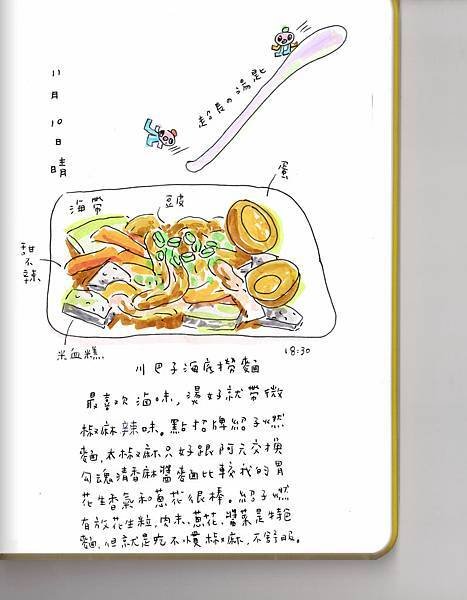 11月10日晴
超長の湯匙
蛋
海帶
豆皮
甜不辣
米血糕
18:30
川巴子海底撈麵
最喜歡滷味,燙好就帶微
椒麻辣味。點招牌紹子燃
麵,太椒麻只好跟阿元交換
勾魂清香麻醬麵比較我的胃
花生香氣和蔥花很棒。紹子燃
有放花生粒,肉末、蔥花、醬菜是特色
麵,但就是吃不慣椒麻,不舒服。